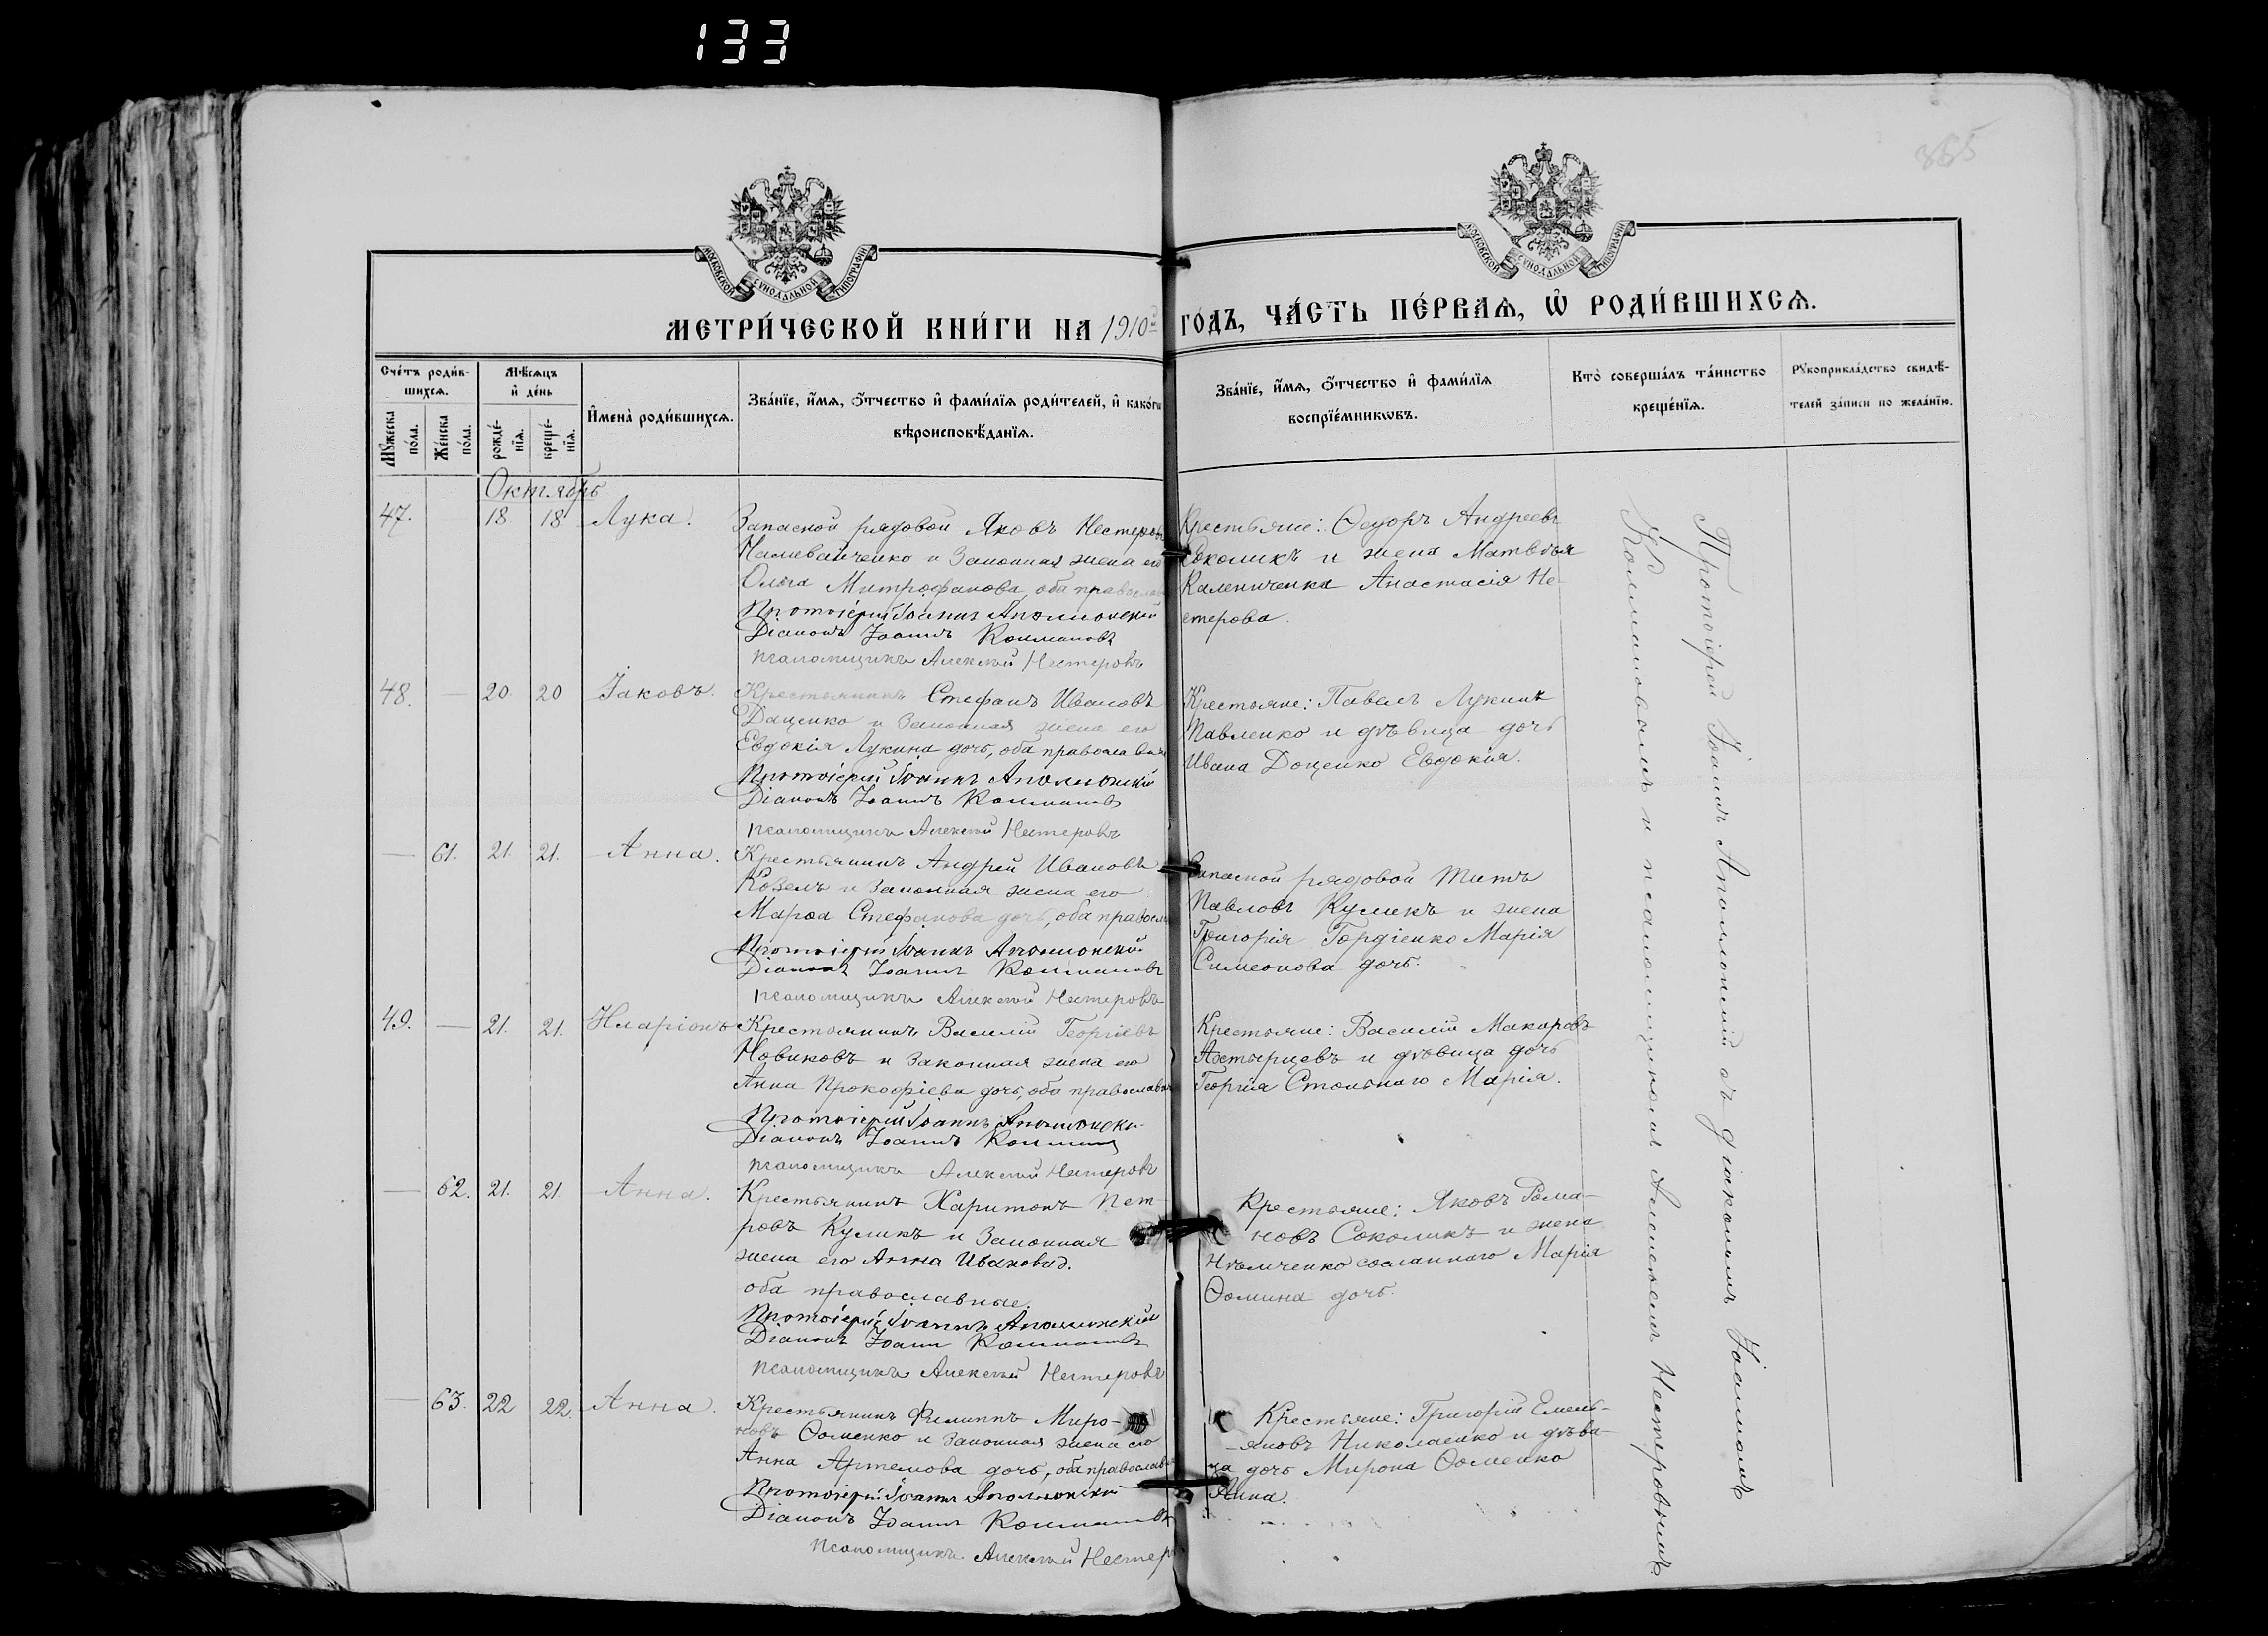 133
365
МОСКОВСКОЙ СѴНОДАЛЬНОЙ ТИПОГРАФІИ
МОСКОВСКОЙ СѴНОДАЛЬНОЙ ТИПОГРАФІИ
МЕТРИ́ЧЕСКОЙ КНИ́ГИ НА 1910й ГОДЪ, ЧА́СТЬ ПЕ́РВАѦ, Ѡ҆ РОДИ́ВШИХСѦ.
Сче́тъ роди́в-
шихсѧ.
Мꙋ́жеска по́ла.
Же́нска по́ла.
Мѣ́сѧцъ
и҆ де́нь
рожде́-нїѧ.
креще́-нїѧ.
И҆мена̀ роди́вшихсѧ.
Зва́нїе, и҆́мѧ, ѻ҆́тчество и҆ фами́лїѧ роди́телей, и҆ како́гѡ
вѣроисповѣ́данїѧ.
Зва́нїе, и҆́мѧ, ѻ҆́тчество и҆ фами́лїѧ
воспрїе́мникѡвъ.
Кто̀ соверша́лъ та́инство
креще́нїѧ.
Рꙋкоприкла́дство свидѣ́-
телей за́писи по жела́нїю.
Октябрь
47. 18 18 Лука.
Запасной рядовой Яковъ Нестеровъ
Наливайченко и законная жена его
Ольга Митрофанова, оба православ
Протоіерей Іоаннъ Аполлонскій
Діаконъ Іоаннъ Колмановъ
псаломщикъ Алексѣй Нестеровъ
Крестьяне: Ѳедоръ Андреевъ
Соколикъ и жена Матвѣя
Калениченка Анастасія Не-
стерова.
48. — 20 20 Іаковъ.
Крестьянинъ Стефанъ Ивановъ
Даценко и законная жена его
Евдокія Лукина дочь, оба православн
Протоіерей Іоаннъ Аполлонскій
Діаконъ Іоаннъ Колмановъ
псаломщикъ Алексѣй Нестеровъ
Крестьяне: Павелъ Лукинъ
Павленко и дѣвица дочь
Ивана Доценко Евдокія.
— 61. 21. 21. Анна.
Крестьянинъ Андрей Ивановъ
Козелъ и законная жена его
Марѳа Стефанова дочь, оба правосл
Протоіерей Іоаннъ Аполлонскій
Діаконъ Іоаннъ Колмановъ
псаломщикъ Алексѣй Нестеровъ
Запасной рядовой Титъ
Павловъ Куликъ и жена
Григорія Гордіенко Марія
Симеонова дочь.
49. — 21. 21. Иларіонъ
Крестьянинъ Василій Георгіевъ
Новиковъ и законная жена его
Анна Прокофіева дочь, оба православн
Протоіерей Іоаннъ Аполлонскій
Діаконъ Іоаннъ Колмановъ
псаломщикъ Алексѣй Нестеровъ
Крестьяне: Василій Макаровъ
и дѣвица дочь
Георгія Стольнаго Марія.
— 62. 21. 21. Анна.
Крестьянинъ Харитонъ Пет-
ровъ Куликъ и законная
жена его Анна Иванова.
оба православные.
Протоіерей Іоаннъ Аполлонскій
Діаконъ Іоаннъ Колмановъ
псаломщикъ Алексѣй Нестеровъ
Крестьяне: Яковъ Рома-
новъ Соколикъ и жена
Нѣмченко сосланнаго Марія
Ѳомина дочь.
— 63. 22 22. Анна.
Крестьянинъ Филиппъ Миро-
новъ Ѳоменко и законная жена его
Анна Артемова дочь, оба православ
Протоіерей Іоаннъ Аполлонскій
Діаконъ Іоаннъ Колмановъ
псаломщикъ Алексѣй Нестеров
Крестьяне: Григорій Емель-
-яновъ Николаенко и дѣви-
ца дочь Мирона Ѳоменко
Анна.
Протоіерей Іоаннъ Аполлонскій съ діакономъ Іоанномъ
Колмановымъ и псаломщикомъ Алексѣемъ Нестеровымъ